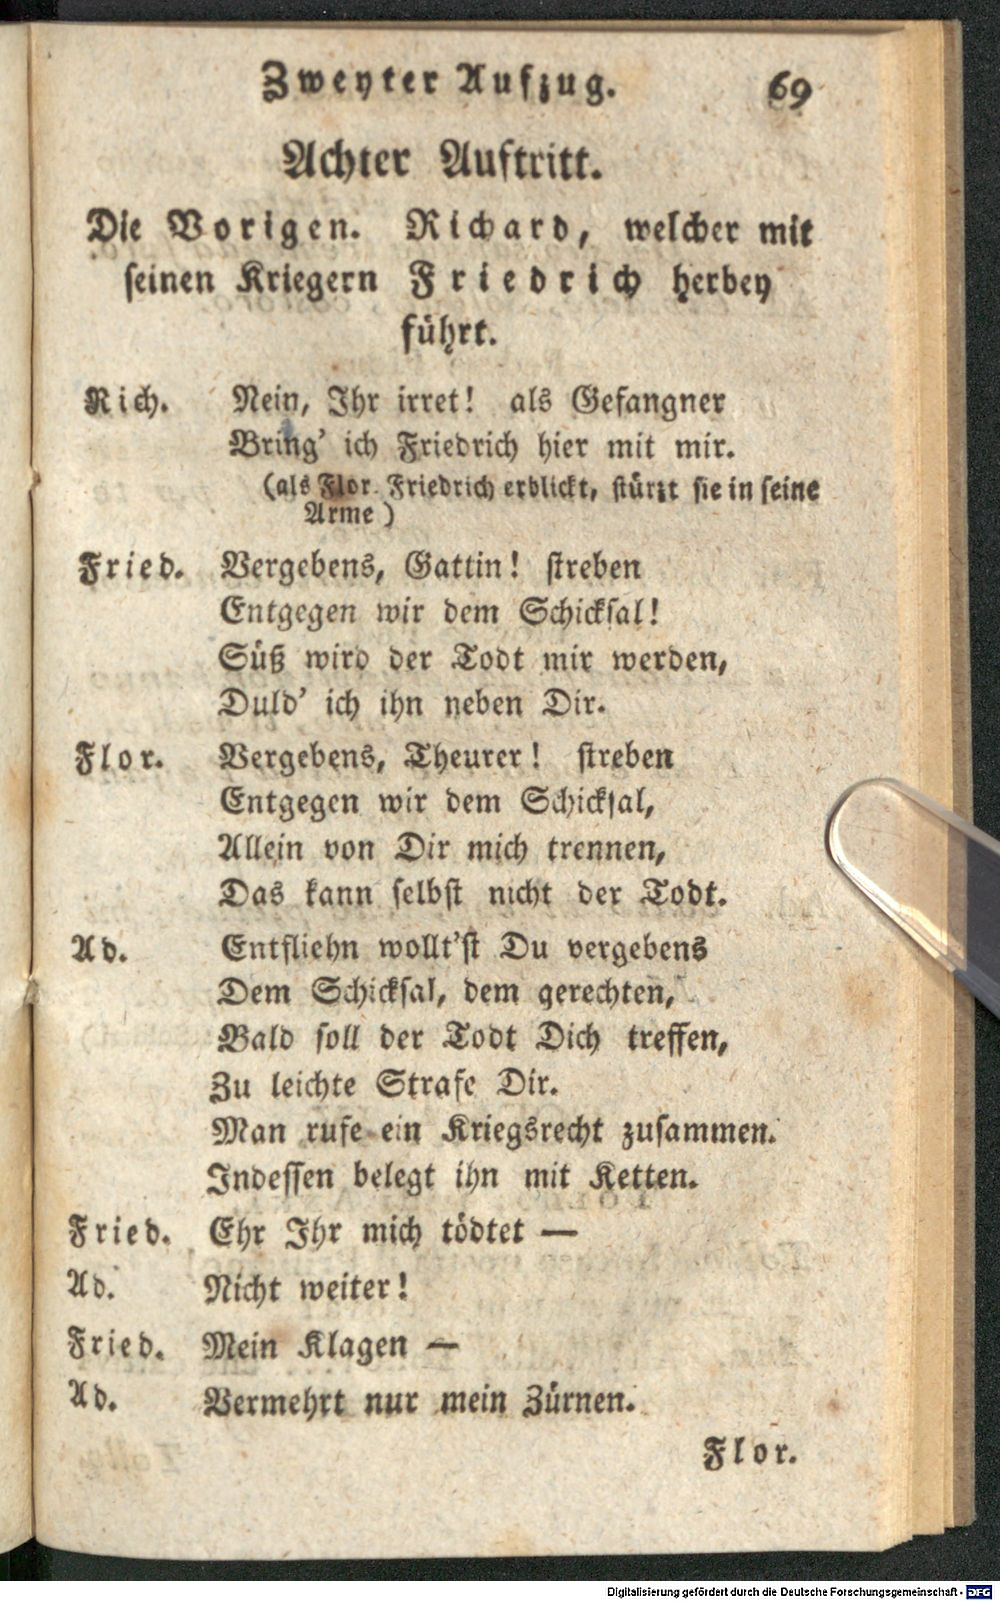 Zweyter Aufzug. 69
Achter Auftritt.
Die Vorigen. Richard, welcher mit
seinen Kriegern Friedrich herbey
führt.
Rich. Nein, Ihr irret! als Gefangner
Bring' ich Friedrich hier mit mir.
(als Flor. Friedrich erblickt, stürzt sie in seine
Arme)
Fried. Vergebens, Gattin! streben
Entgegen wir dem Schicksal!
Süß wird der Todt mir werden,
Duld' ich ihn neben Dir.
Flor. Vergebens, Theurer! streben
Entgegen wir dem Schicksal,
Allein von Dir mich trennen,
Das kann selbst nicht der Todt.
Ad. Entfliehn wollt'st Du vergebens
Dem Schicksal, dem gerechten,
Bald soll der Todt Dich treffen,
Zu leichte Strafe Dir.
Man rufe ein Kriegsrecht zusammen.
Indessen belegt ihn mit Ketten.
Fried. Ehr Ihr mich tödtet —
Ad. Nicht weiter!
Fried. Mein Klagen —
Ad. Vermehrt nur mein Zürnen.
Flor.
Digitalisierung gefördert durch die Deutsche Forschungsgemeinschaft - DFG